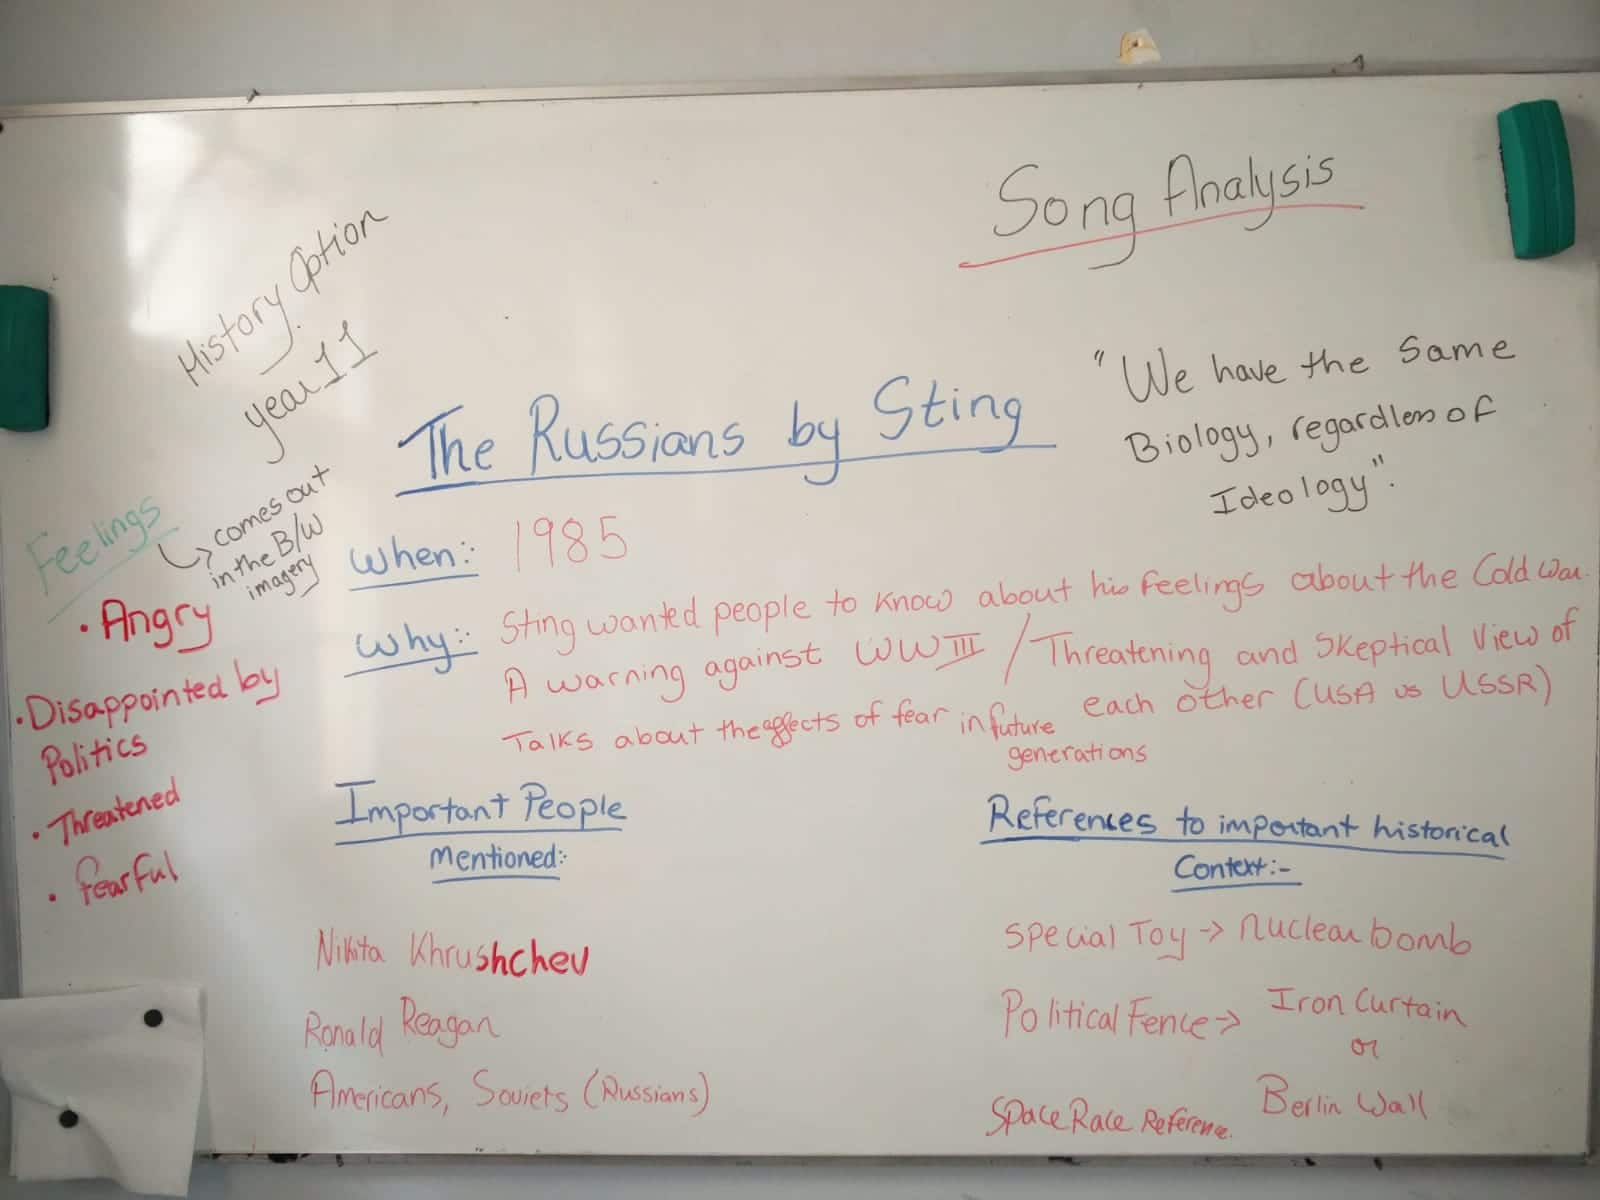 Song Analysis
History Option
year 11
"We have the same
Biology, regardless of
Ideology".
The Russians by Sting
Feelings
comes out
in the B/W
imagery
• Angry
• Disappointed by
Politics
• Threatened
• fearful
When:- 1985
Why:- Sting wanted people to know about his feelings about the Cold War.
A warning against WWIII / Threatening and Skeptical View of
each other (USA vs USSR)
Talks about the effects of fear in future
generations
Important People
Mentioned:-
Nikita Khrushchev
Ronald Reagan
Americans, Soviets (Russians)
References to important historical
Context:-
Special Toy → nuclear bomb
Political Fence → Iron Curtain
or
Berlin Wall
Space Race Reference.